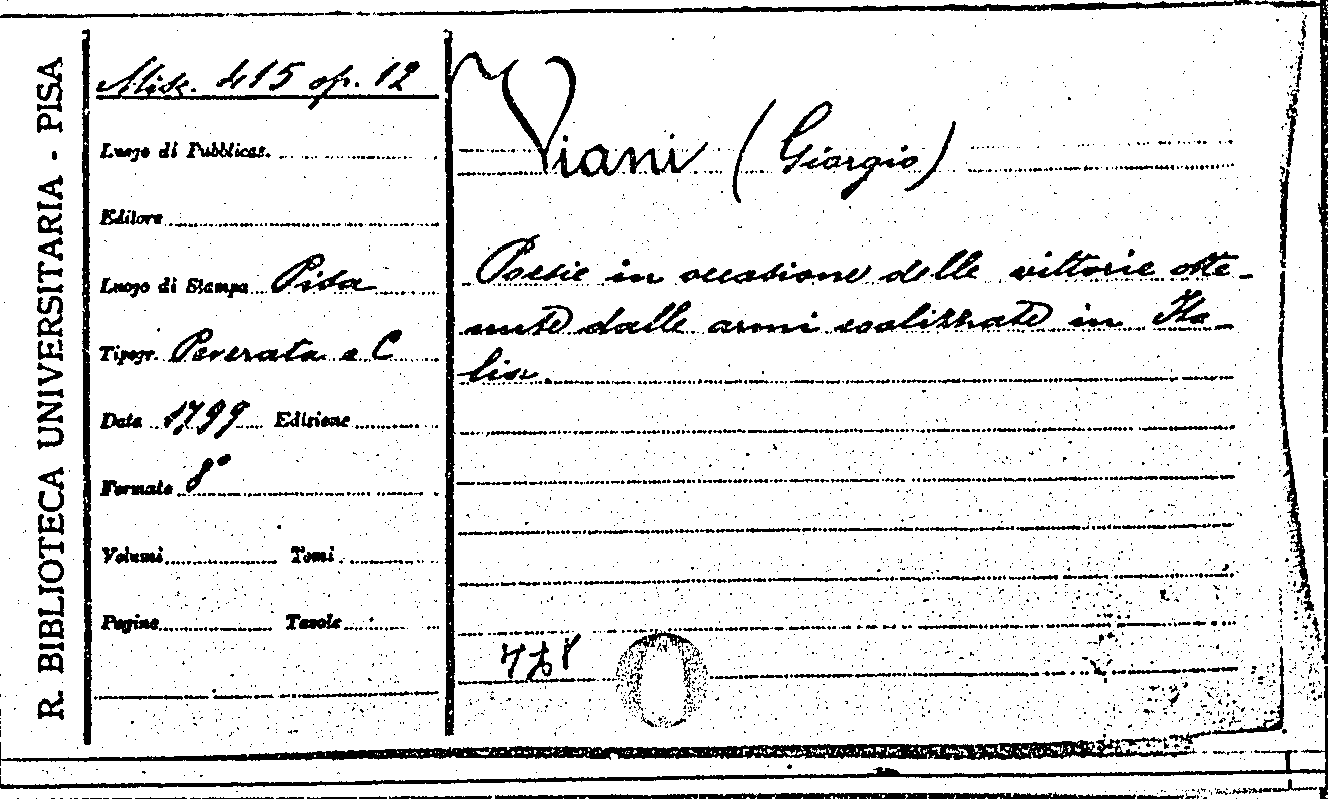 R. BIBLIOTECA UNIVERSITARIA - PISA
Misc. 415 op. 12
Luogo di Pubblicaz.
Editore
Luogo di Stampa Pisa
Tipogr. Peverata e C
Data 1799 Edizione
Formato 8°
Volumi Tomi
Pagine Tavole
Viani (Giorgio)
Poesie in occasione delle vittorie otte-
nute dalle armi coalizzate in Ita-
lia.